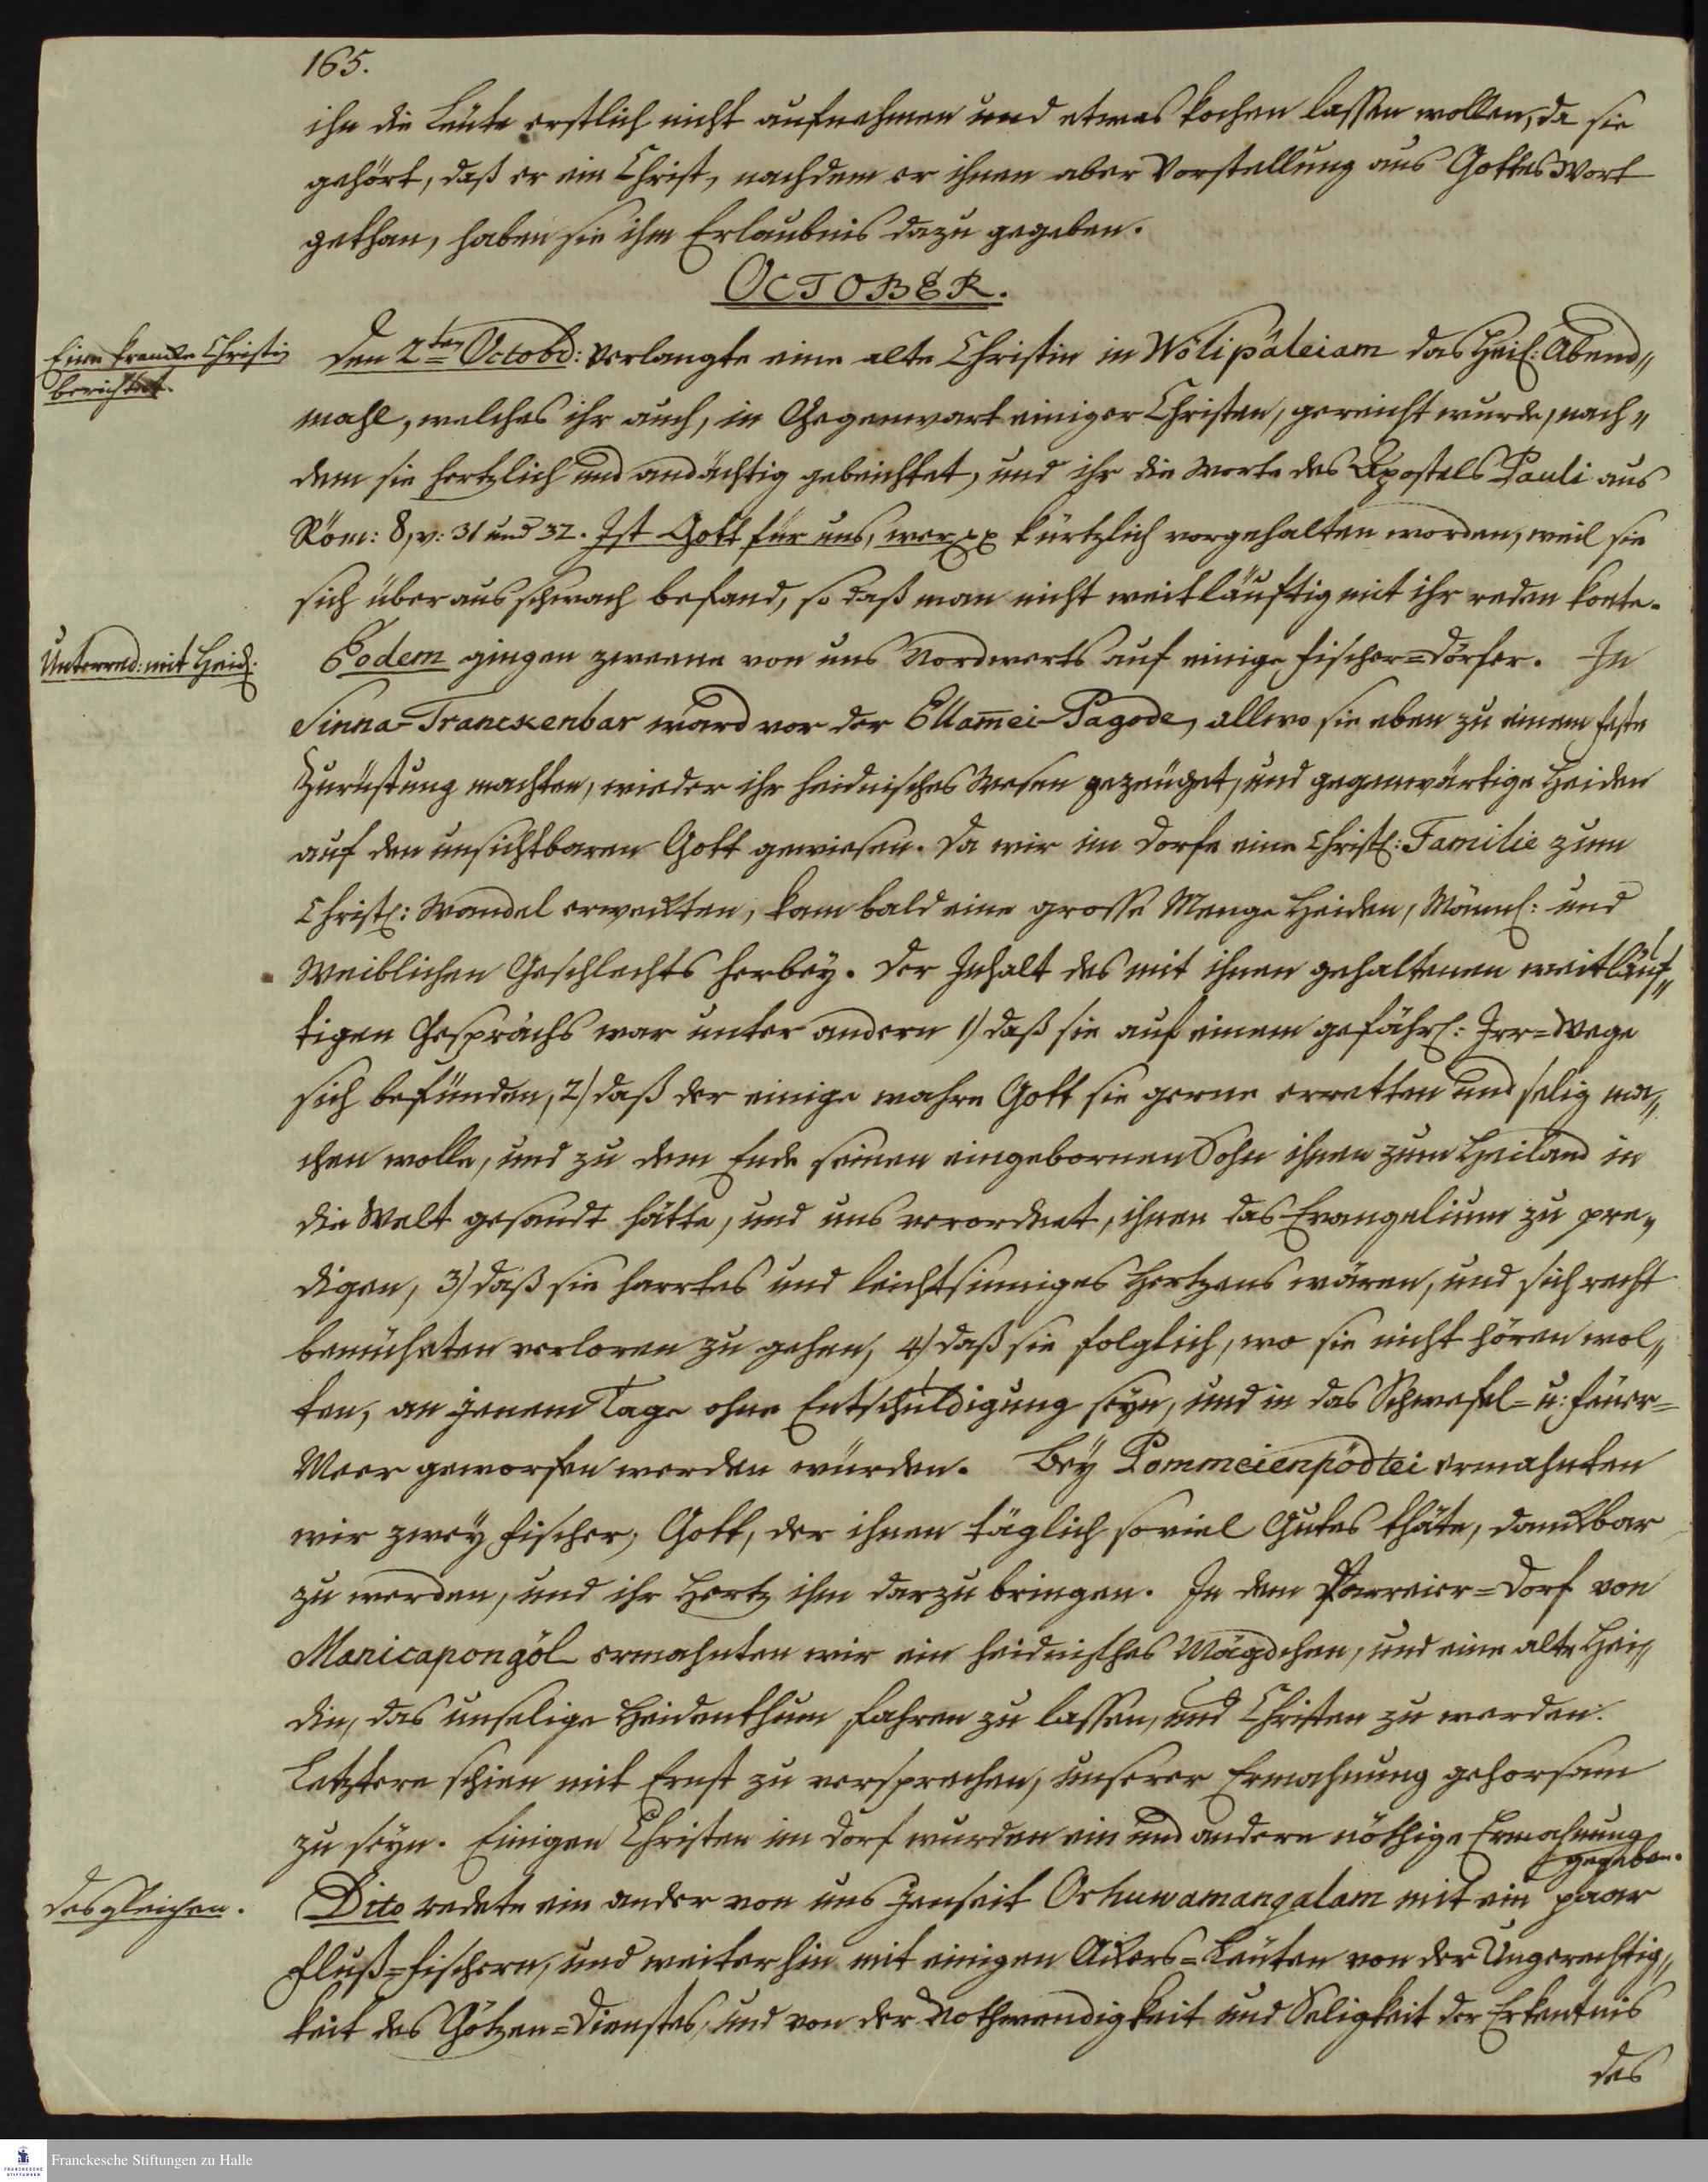 165.
ihn die Leute erstlich nicht aufnehmen und etwas kochen lassen wollen, da sie
gehört, daß er ein Christ, nachdem er ihnen aber Vorstellung aus Gottes Wort
gethan, haben sie ihm Erlaubnis dazu gegeben.
OCTOBER.
Eine krancke Christin
berichtet.
Den 2ten Octobr: verlangte eine alte Christin in Wölipäleiam das Heil: Abend„
mahl, welches ihr auch, in Gegenwart einiger Christen, gereicht wurde, nach„
dem sie hertzlich und andächtig gebeichtet, und ihr die Worte des Apostels Pauli aus
Röm: 8, v: 31 und 32. Ist Gott für uns, wer pp kürtzlich vorgehalten worden, weil sie
sich überaus schwach befand, so daß man nicht weitläuftig mit ihr reden konte.
Unterred: mit Heid:
Eodem gingen zweene von uns Nordwerts auf einige Fischer=Dörfer. In
Sinna-Tranckenbar ward vor der Ellam̄ei-Pagode, allwo sie eben zu einem Feste
Zurüstung machten, wieder ihr heidnisches Wesen gezeuget, und gegenwärtige Heiden
auf den unsichtbaren Gott gewiesen. Da wir im Dorfe eine Christl: Familie zum
Christl: Wandel erweckten, kam bald eine grosse Menge Heiden, Männl: und
Weiblichen Geschlechts herbey. Der Inhalt des mit ihnen gehaltenen weitläuf„
tigen Gesprächs war unter andern 1) daß sie auf einem gefährl: Irr=Wege
sich befünden, 2) daß der einige wahre Gott sie gerne erretten und selig ma„
chen wolle, und zu dem Ende seinen eingebornen Sohn ihnen zum Heiland in
die Welt gesandt hätte, und uns verordnet, ihnen das Evangelium zu pre„
digen, 3) daß sie hartes und leichtsinniges Hertzens wären, und sich recht
bemüheten verloren zu gehen, 4) daß sie folglich, wo sie nicht hören wol„
ten, an jenem Tage ohne Entschuldigung seyn, und in das Schwefel= u: Feuer=
Meer geworfen werden würden. Bey Pommeienpödtei ermahnten
wir zwey Fischer, Gott, der ihnen täglich so viel Gutes thäte, danckbar
zu werden, und ihr Hertz ihm darzubringen. In dem Parreier=Dorf von
Maricapongöl ermahnten wir ein heidnisches Mägdchen, und eine alte Hei„
din, das unselige Heidenthum fahren zu lassen, und Christen zu werden.
Letztere schien mit Ernst zu versprechen, unserer Ermahnung gehorsam
zu seyn. Einigen Christen im Dorf wurden ein und andere nöthige Ermahnung
gegeben.
desgleichen.
Dito redete ein ander von uns jenseit Orhuwamangalam mit ein paar
Fluß=Fischern, und weiterhin mit einigen Ackers=Leuten von der Ungerechtig„
keit des Götzen=Dienstes, und von der Nothwendigkeit und Seligkeit der Erkentnis
des
Franckesche Stiftungen zu Halle